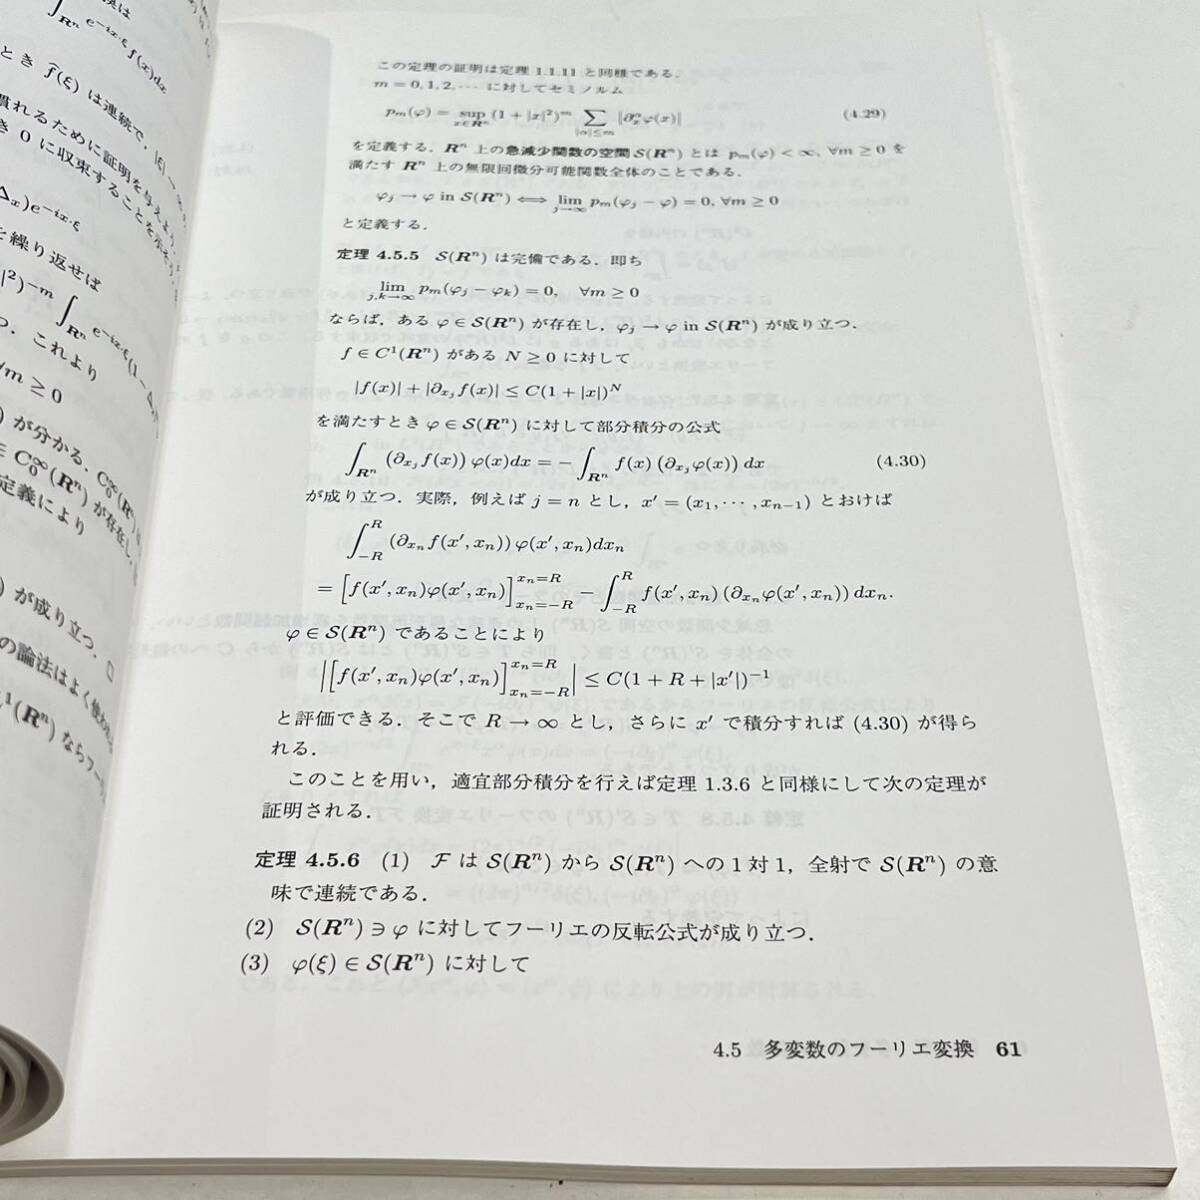 換は
∫_{R^n} e^{-ix·ξ} f(x)dx
とき f̂(ξ) は連続で, |ξ| →
慣れるために証明を与えよう.
き 0 に収束することを示そう.
Δ_x)e^{-ix·ξ}
を繰り返せば
|²)^{-m} ∫_{R^n} e^{-ix·ξ}(1 − Δ_x
つ. これより
∀m ≥ 0
) が分かる. C_0^∞(R^n)
∈ C_0^∞(R^n) が存在し,
定義により
) が成り立つ. □
の論法はよく使われ
L^1(R^n) ならフー
この定理の証明は定理 1.1.11 と同様である.
m = 0, 1, 2, ··· に対してセミノルム
p_m(φ) = sup_{x∈R^n} (1 + |x|²)^m ∑_{|α|≤m} |∂_x^α φ(x)| (4.29)
を定義する. R^n 上の急減少関数の空間 S(R^n) とは p_m(φ) < ∞, ∀m ≥ 0 を
満たす R^n 上の無限回微分可能関数全体のことである.
φ_j → φ in S(R^n) ⟺ lim_{j→∞} p_m(φ_j − φ) = 0, ∀m ≥ 0
と定義する.
定理 4.5.5 S(R^n) は完備である. 即ち
lim_{j,k→∞} p_m(φ_j − φ_k) = 0, ∀m ≥ 0
ならば, ある φ ∈ S(R^n) が存在し, φ_j → φ in S(R^n) が成り立つ.
f ∈ C^1(R^n) がある N ≥ 0 に対して
|f(x)| + |∂_{x_j} f(x)| ≤ C(1 + |x|)^N
を満たすとき φ ∈ S(R^n) に対して部分積分の公式
∫_{R^n} (∂_{x_j} f(x)) φ(x)dx = − ∫_{R^n} f(x) (∂_{x_j} φ(x)) dx (4.30)
が成り立つ. 実際, 例えば j = n とし, x′ = (x_1, ··· , x_{n−1}) とおけば
∫_{−R}^{R} (∂_{x_n} f(x′, x_n)) φ(x′, x_n)dx_n
= [f(x′, x_n)φ(x′, x_n)]_{x_n=−R}^{x_n=R} − ∫_{−R}^{R} f(x′, x_n) (∂_{x_n} φ(x′, x_n)) dx_n.
φ ∈ S(R^n) であることにより
|[f(x′, x_n)φ(x′, x_n)]_{x_n=−R}^{x_n=R}| ≤ C(1 + R + |x′|)^{−1}
と評価できる. そこで R → ∞ とし, さらに x′ で積分すれば (4.30) が得ら
れる.
このことを用い, 適宜部分積分を行えば定理 1.3.6 と同様にして次の定理が
証明される.
定理 4.5.6 (1) F は S(R^n) から S(R^n) への 1 対 1, 全射で S(R^n) の意
味で連続である.
(2) S(R^n) ∋ φ に対してフーリエの反転公式が成り立つ.
(3) φ(ξ) ∈ S(R^n) に対して
4.5 多変数のフーリエ変換 61